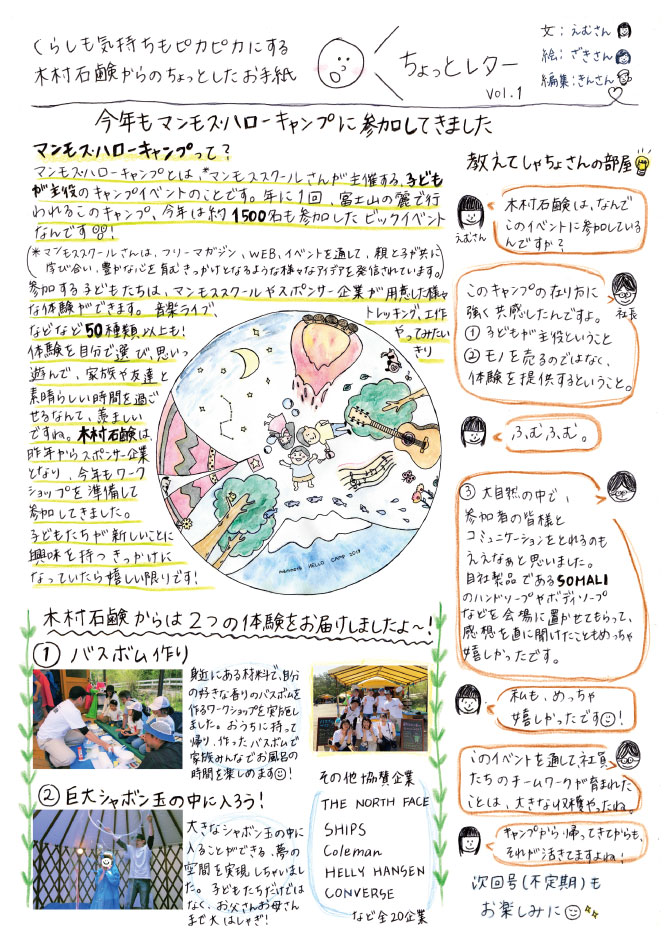 くらしも気持ちもピカピカにする
木村石鹸からのちょっとしたお手紙
ちょっとレター
vol.1
文：えむさん
絵：ざきさん
編集：きんさん
今年もマンモス・ハローキャンプに参加してきました
マンモス・ハローキャンプって？
マンモス・ハローキャンプとは、*マンモススクールさんが主催する、子ども
が主役のキャンプイベントのことです。年に1回、富士山の麓で行
われるこのキャンプ、今年は約1500名も参加したビックイベント
なんです!
(*マンモススクールさんは、フリーマガジン、WEB、イベントを通して、親と子が共に
学び合い、豊かな心を育むきっかけとなるような様々なアイデアを発信されています。)
参加する子どもたちは、マンモススクールやスポンサー企業が用意した様々
な体験ができます。音楽ライブ、トレッキング、工作
などなど50種類以上も！やってみたい
体験を自分で選び、思いっきり
遊んで、家族や友達と
素晴らしい時間を過ご
せるなんて、羨ましい
ですね。木村石鹸は、
昨年からスポンサー企業
となり、今年もワーク
ショップを準備して
参加してきました。
子どもたちが新しいことに
興味を持つきっかけに
なっていたら嬉しい限りです！
mammoth HELLO CAMP 2019
木村石鹸からは2つの体験をお届けしましたよ〜！
① バスボム作り
身近にある材料で、自分
の好きな香りのバスボムを
作るワークショップを実施し
ました。おうちに持って
帰り、作ったバスボムで
家族みんなでお風呂の
時間を楽しめます！
② 巨大シャボン玉の中に入ろう！
大きなシャボン玉の中に
入ることができる、夢の
空間を実現しちゃいまし
た。子どもたちだけでは
なく、お父さんお母さん
まで大はしゃぎ！
その他協賛企業
THE NORTH FACE
SHIPS
Coleman
HELLY HANSEN
CONVERSE
など全20企業
教えてしゃちょさんの部屋
えむさん
木村石鹸は、なんで
このイベントに参加している
んですか？
社長
このキャンプの在り方に
強く共感したんですよ。
① 子どもが主役ということ
② モノを売るのではなく、
体験を提供するということ。
ふむふむ。
③ 大自然の中で、
参加者の皆様と
コミュニケーションをとれるのも
ええなぁと思いました。
自社製品であるSOMALI
のハンドソープやボディソープ
などを会場に置かせてもらって、
感想を直に聞けたこともめっちゃ
嬉しかったです。
私も、めっちゃ
嬉しかったです！
このイベントを通して、社員
たちのチームワークが育まれた
ことは、大きな収穫やったね。
キャンプから帰ってきてからも、
それが活きてますよね！
次回号(不定期)も
お楽しみに